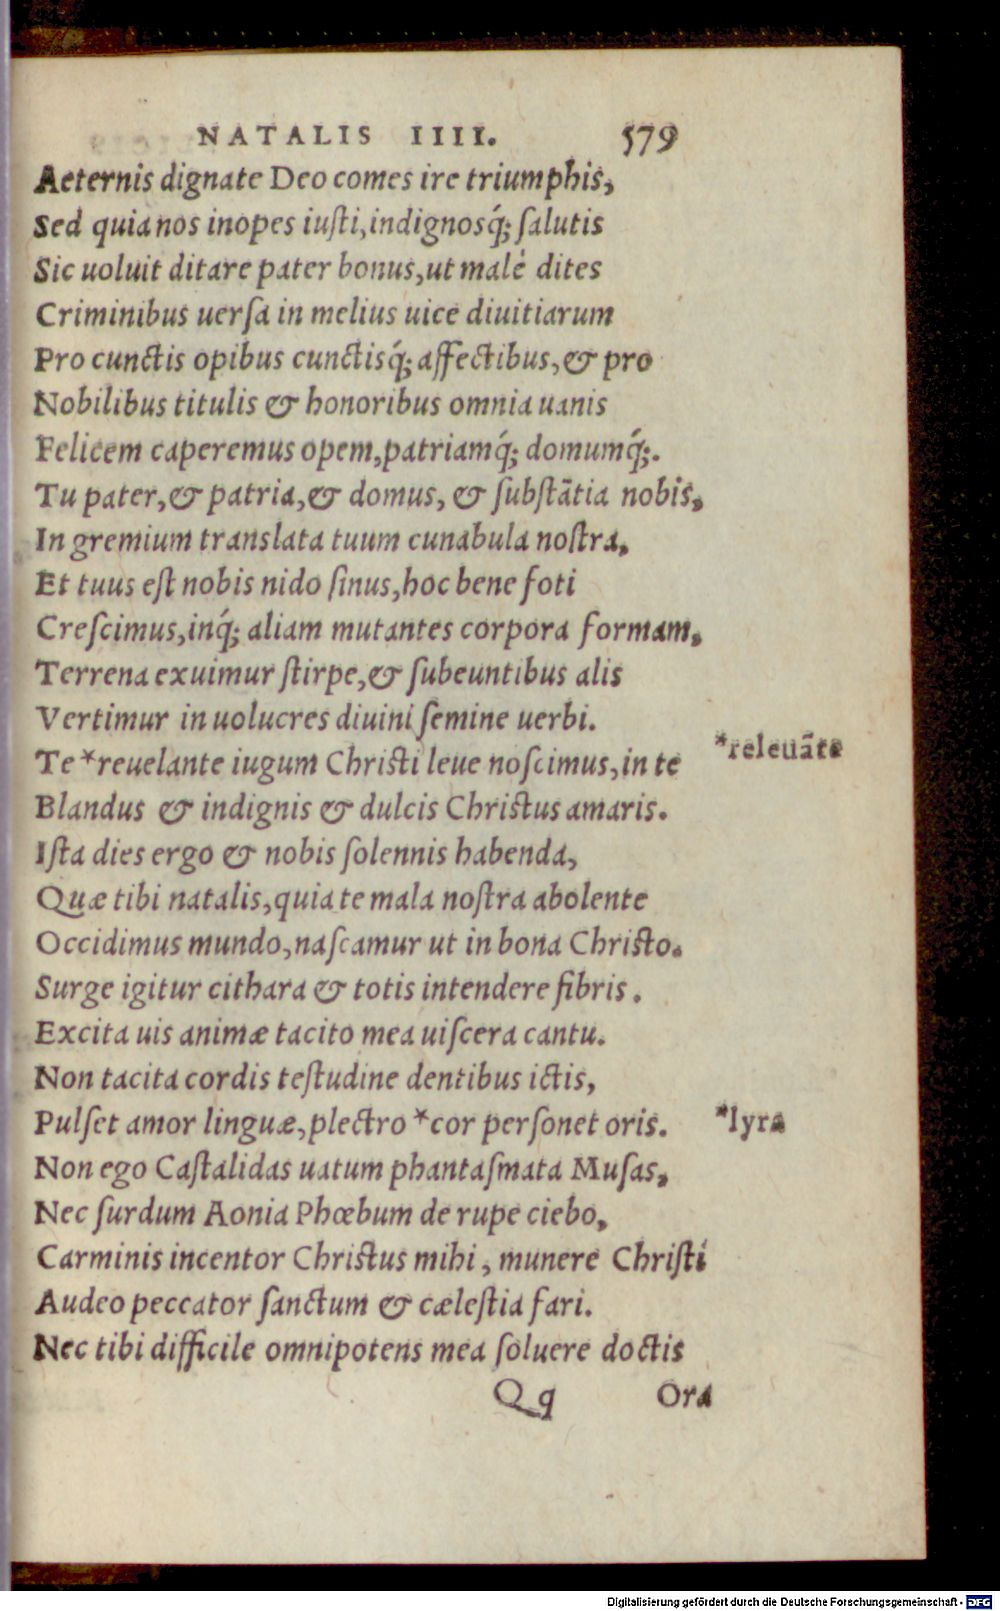 NATALIS IIII. 579
Aeternis dignate Deo comes ire triumphis,
Sed quia nos inopes iuſti, indignosq́; ſalutis
Sic uoluit ditare pater bonus, ut malè dites
Criminibus uerſa in melius uice diuitiarum
Pro cunctis opibus cunctisq́; affectibus, & pro
Nobilibus titulis & honoribus omnia uanis
Felicem caperemus opem, patriamq́; domumq́;.
Tu pater, & patria, & domus, & ſubſtãtia nobis,
In gremium translata tuum cunabula noſtra,
Et tuus eſt nobis nido ſinus, hoc bene foti
Creſcimus, inq́; aliam mutantes corpora formam,
Terrena exuimur ſtirpe, & ſubeuntibus alis
Vertimur in uolucres diuini ſemine uerbi.
Te *reuelante iugum Chriſti leue noſcimus, in te *releuãte
Blandus & indignis & dulcis Chriſtus amaris.
Iſta dies ergo & nobis ſolennis habenda,
Quæ tibi natalis, quia te mala noſtra abolente
Occidimus mundo, naſcamur ut in bona Chriſto.
Surge igitur cithara & totis intendere fibris.
Excita uis animæ tacito mea uiſcera cantu.
Non tacita cordis teſtudine dentibus ictis,
Pulſet amor linguæ, plectro *cor perſonet oris. *lyra
Non ego Caſtalidas uatum phantaſmata Muſas,
Nec ſurdum Aonia Phœbum de rupe ciebo,
Carminis incentor Chriſtus mihi, munere Chriſti
Audeo peccator ſanctum & cæleſtia fari.
Nec tibi difficile omnipotens mea ſoluere doctis
Qq Ora
Digitalisierung gefördert durch die Deutsche Forschungsgemeinschaft - DFG